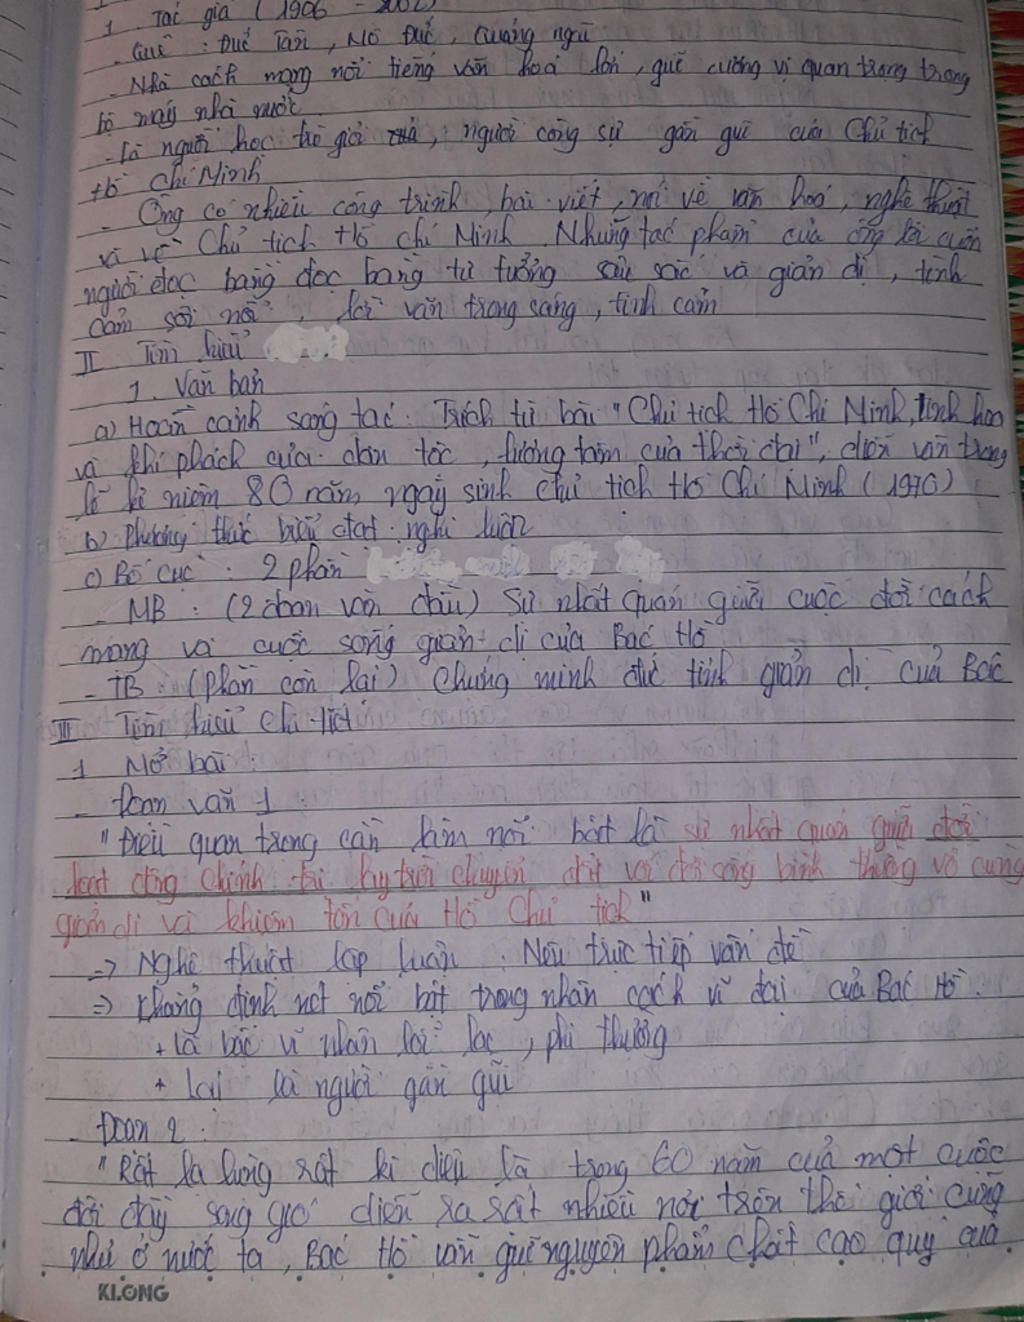 1 Tác giả (1906 - 2000)
- Quê : Đức Tân, Mộ Đức, Quảng ngũ
- Nhà cách mạng nổi tiếng văn hoá lớn, giữ cường vị quan trọng trong
bộ máy nhà nước
- Là người học trò giỏi của, người cộng sự gần gũi của Chủ tịch
Hồ Chí Minh
- Ông có nhiều công trình, bài viết, nói về văn hoá, nghệ thuật
và về Chủ tịch Hồ Chí Minh. Những tác phẩm của ông lôi cuốn
người đọc bằng đọc bằng tư tưởng sâu sắc và giản dị, tình
cảm sôi nổi, lời văn trong sáng, tình cảm
II Tìm hiểu
1. Văn bản
a) Hoàn cảnh sáng tác: Trích từ bài "Chủ tịch Hồ Chí Minh, tinh hoa
và khí phách của dân tộc, lương tâm của thời đại", diễn văn trong
lễ kỉ niệm 80 năm ngày sinh chủ tịch Hồ Chí Minh (1970)
b) Phương thức biểu đạt: nghị luận
c) Bố cục : 2 phần
- MB : (2 đoạn văn đầu) Sự nhất quán giữa cuộc đời cách
mạng và cuộc sống giản dị của Bác Hồ
- TB : (Phần còn lại) Chứng minh đức tính giản dị của Bác
III Tìm hiểu chi tiết
1 Mở bài:
- Đoạn văn 1
"Điều quan trọng cần làm nổi bật là sự nhất quán giữa đời
hoạt động chính trị lay trời chuyển đất với đời sống bình thường vô cùng
giản dị và khiêm tốn của Hồ Chủ tịch"
=> Nghệ thuật lập luận. Nêu trực tiếp vấn đề
=> Khẳng định nét nổi bật trong nhân cách vĩ đại của Bác Hồ.
+ Là bậc vĩ nhân lỗi lạc, phi thường
+ lại là người gần gũi
- Đoạn 2 :
"Rất lạ lùng rất kì diệu là trong 60 năm của một cuộc
đời đầy sóng gió diễn ra rất nhiều nơi trên thế giới cũng
như ở nước ta, Bác Hồ vẫn giữ nguyên phẩm chất cao quý của
KLONG